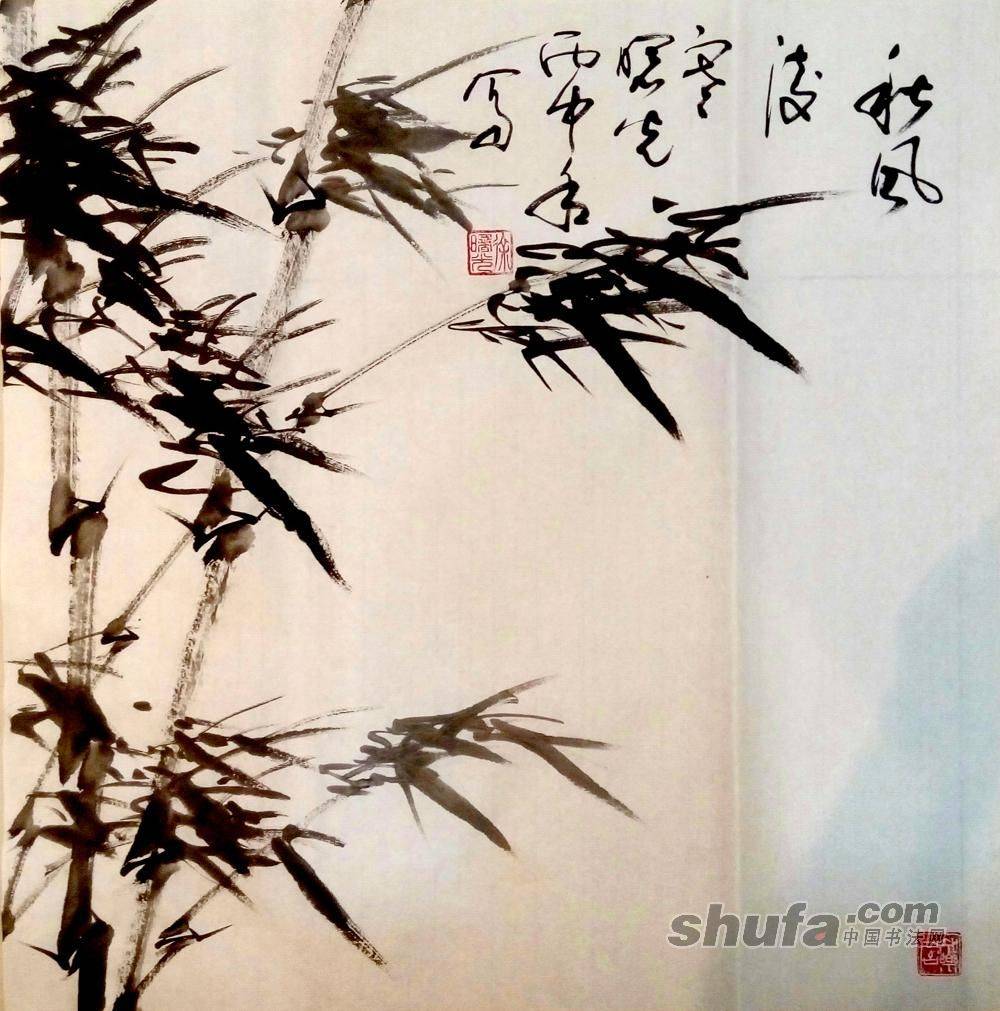 秋风
凌
寒
曙光
丙申
写
shufa.com
中国书法网